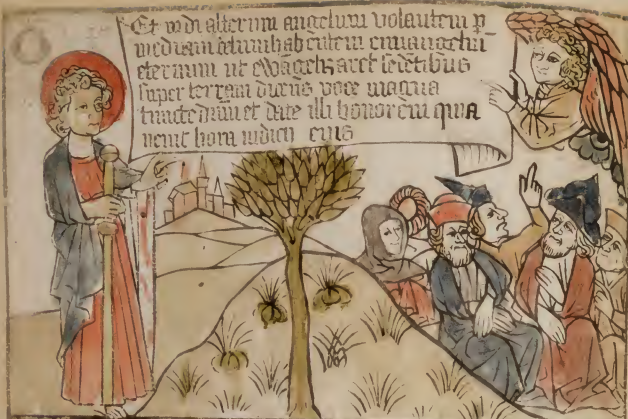 Et vidi alterum angelum volantem p
mediam celum habentem ewangeliu
eternum ut ewāgelizaret sedētibus
super terram dicens voce magna
timete dnm et date illi honorem quia
venit hora iudicii eius